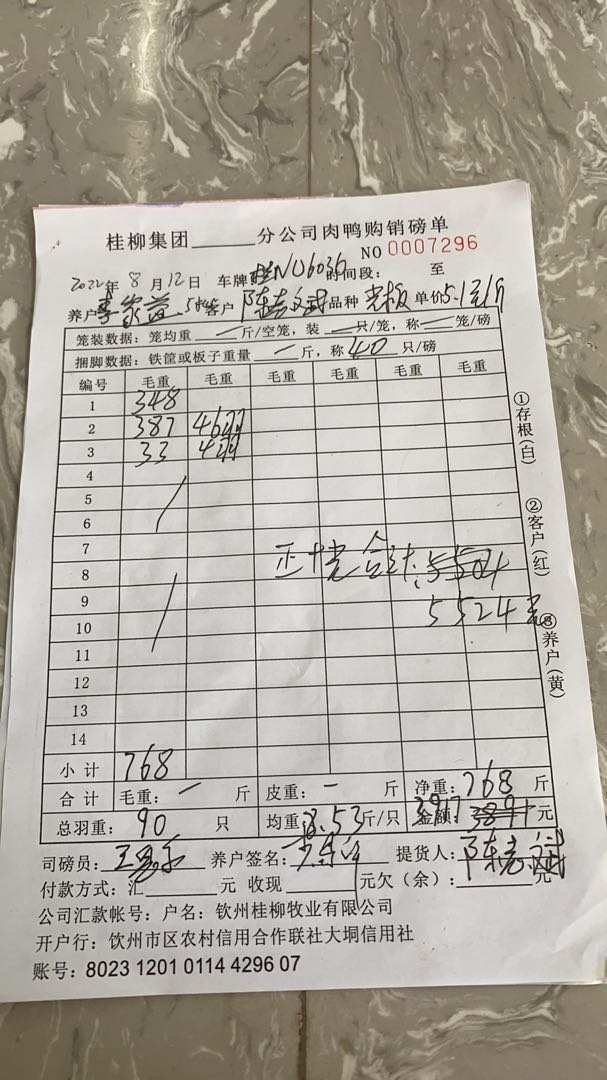 桂柳集团______分公司肉鸭购销磅单
NO 0007296
2022年 8月12日 车牌 桂NU6036 时间段: 至
养户 李家益 客户 陈嘉斌 品种 光板 单价 5.1元/斤
笼装数据:笼均重 — 斤/空笼,装 — 只/笼,称 — 笼/磅
捆脚数据:铁筐或板子重量 — 斤,称 40 只/磅
编号 毛重 毛重 毛重 毛重 毛重 毛重
1 348
2 387 46羽
3 33 4羽
4
5
6
7
8 合计:5504
9 5524元
10
11
12
13
14
小计 768
合计 毛重: — 斤 皮重: — 斤 净重: 768 斤
总羽重: 90 只 均重: 8.53 斤/只 金额: 3917 元
司磅员: 养户签名: 提货人: 陈嘉斌
付款方式:汇______元 收现______元欠(余):______元
公司汇款帐号:户名:钦州桂柳牧业有限公司
开户行:饮州市区农村信用合作联社大垌信用社
账号:8023 1201 0114 4296 07
①存根(白)
②客户(红)
③养户(黄)